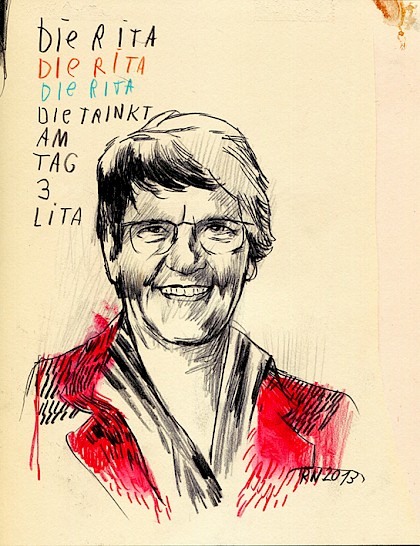 DiE RiTA
DIE RiTA
DIE RITA
DIE TRINKT
AM
TAG
3
LiTA
RN 2013